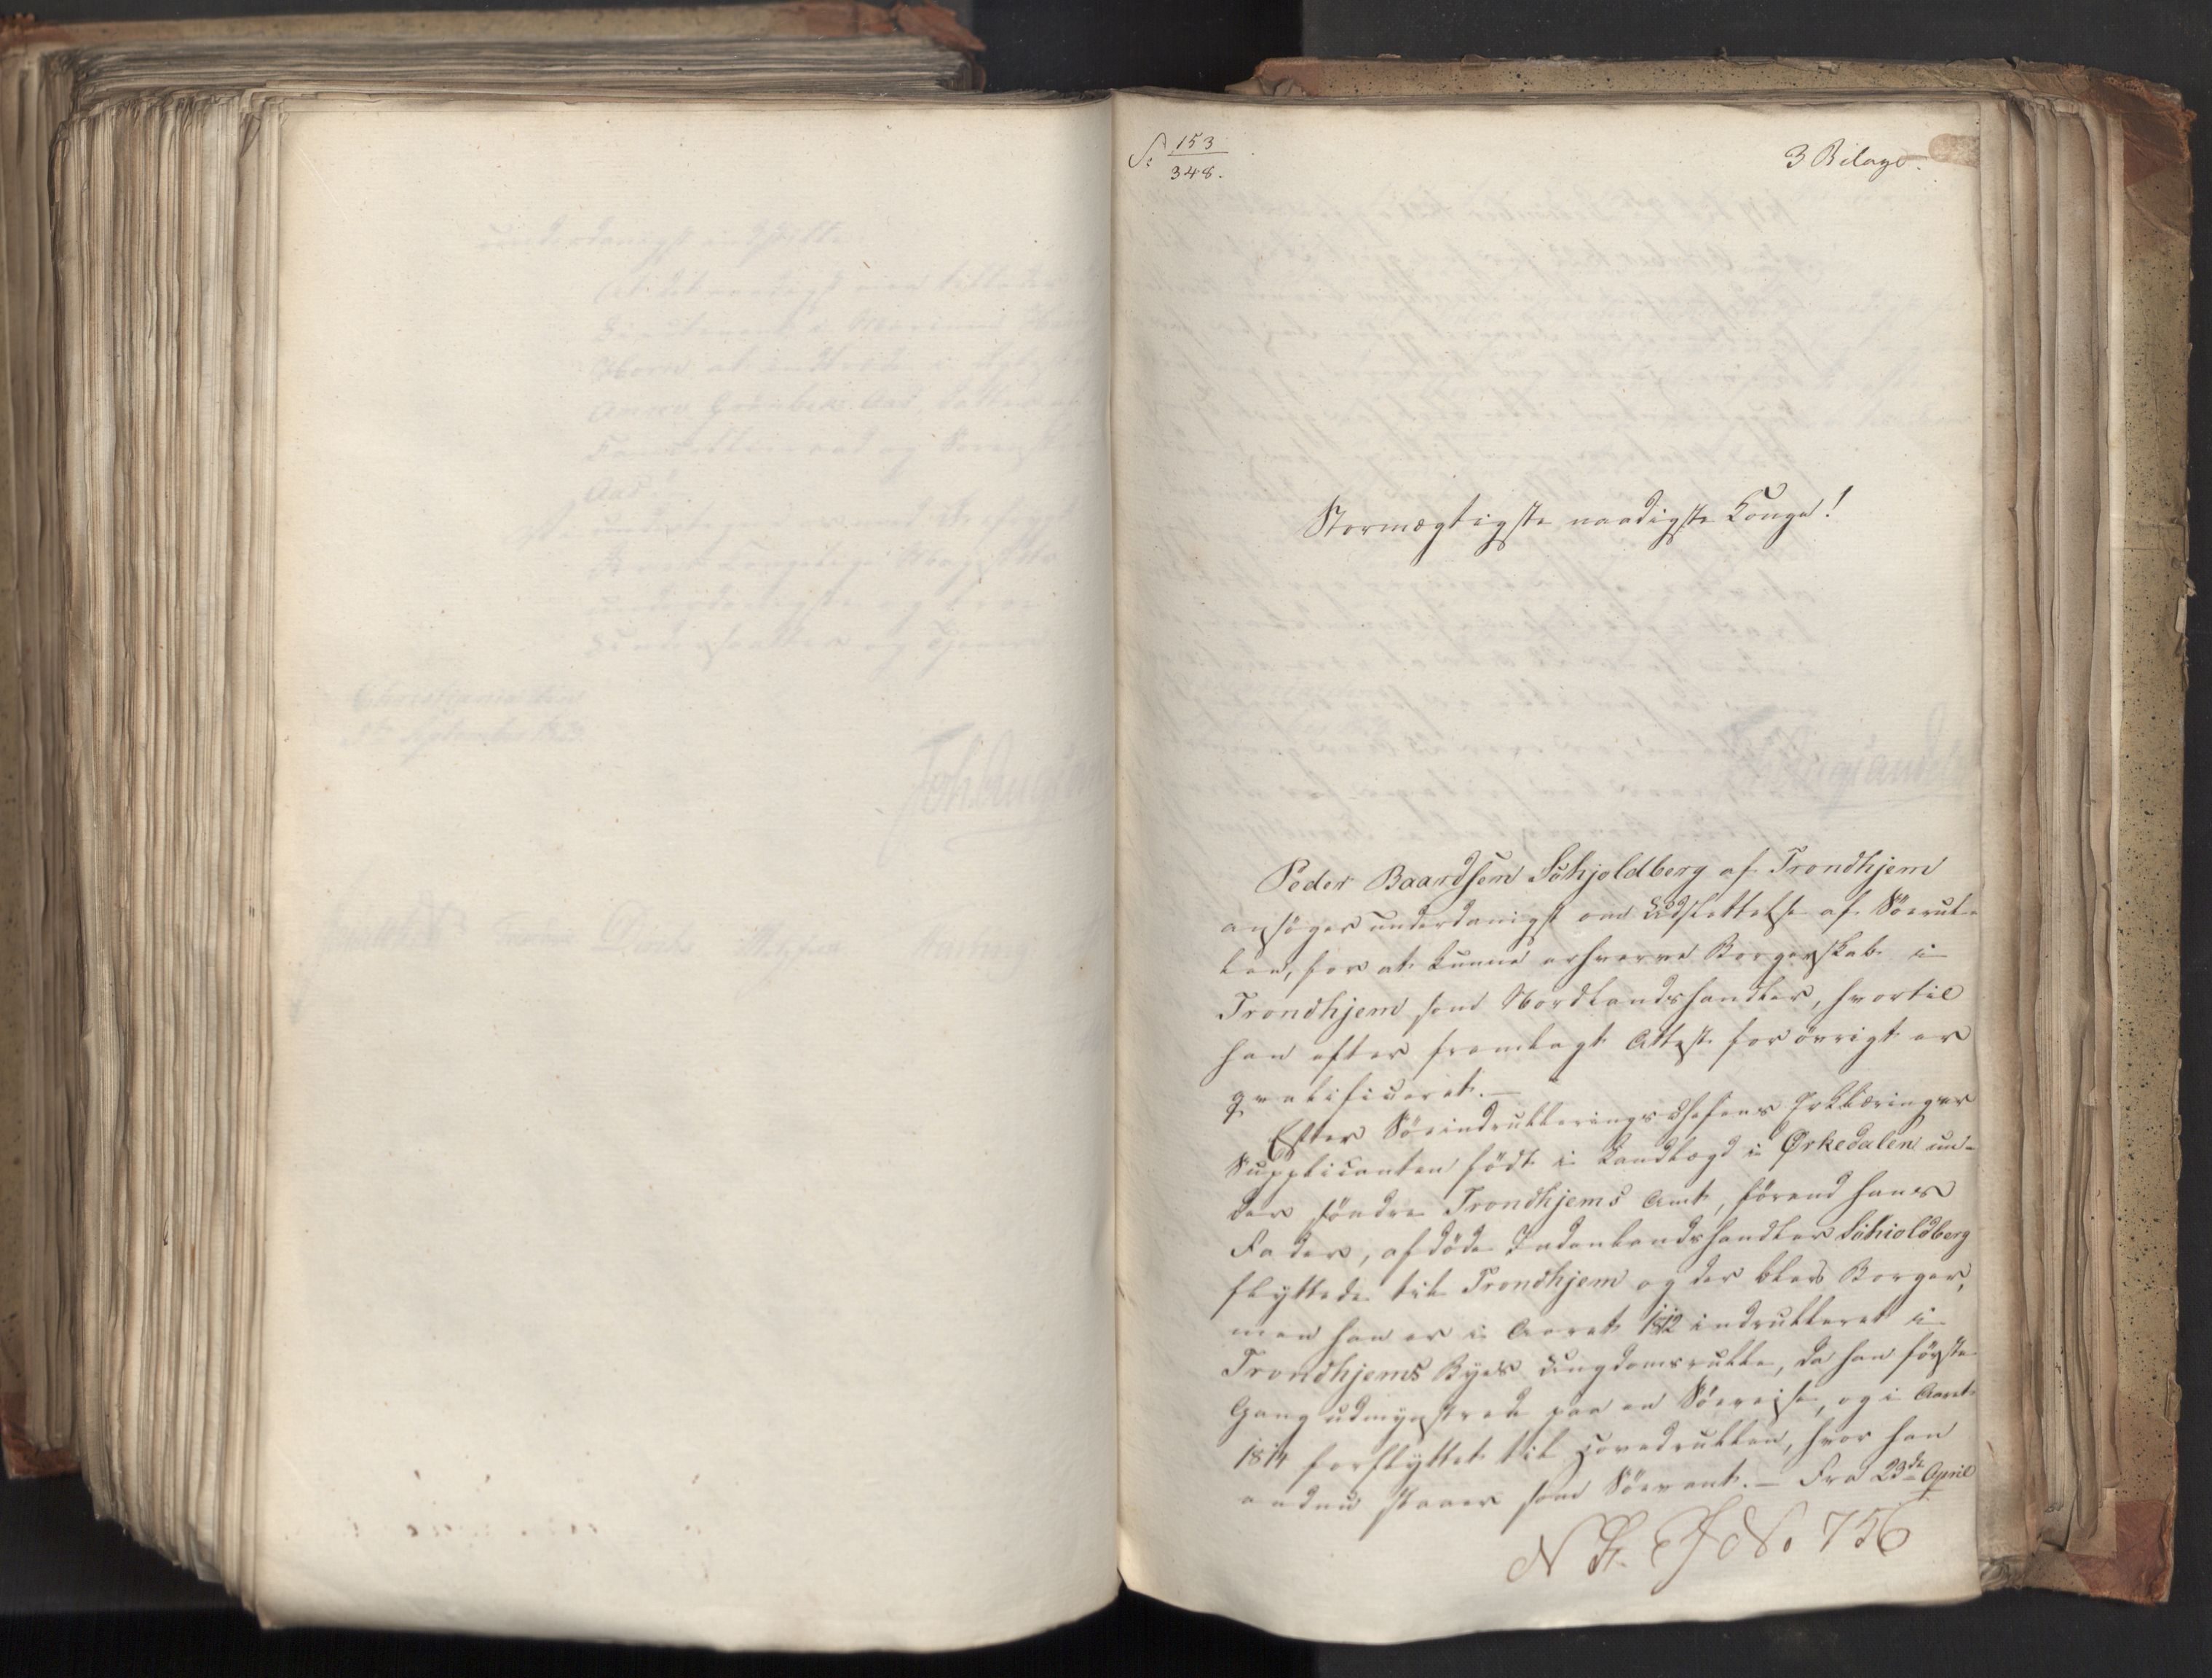 S: 153/348.
3 Bilage.
Stormægtigste naadigste Konge!
Peder Baardsen Schjoldberg af Trondhjem
ansøger underdanigst om Udslettelse af Søerul-
len, for at kunne erhverve Borgerskab i
Trondhjem som Nordlandshandler, hvortil
han efter fremlagt Attest forøvrigt er
qvalificeret. —
Efter Søeindrulleringschefens Erklæringer er
Supplicanten født i Landlægd i Ørkedalen un-
der søndre Trondhjems Amt, førend hans
Fader, afdøde Indenlandshandler Schioldberg
flyttede til Trondhjem og der blev Borger,
men han er i Aaret 1812 indrulleret i
Trondhjems Byes Ungdomsrulle, da han første
Gang udmynstrede paa en Søereise, og i Aaret
1814 forflyttet til Hovedrullen, hvor han
endnu staaer som Søevant. — Fra 23de April
N. J. No 756